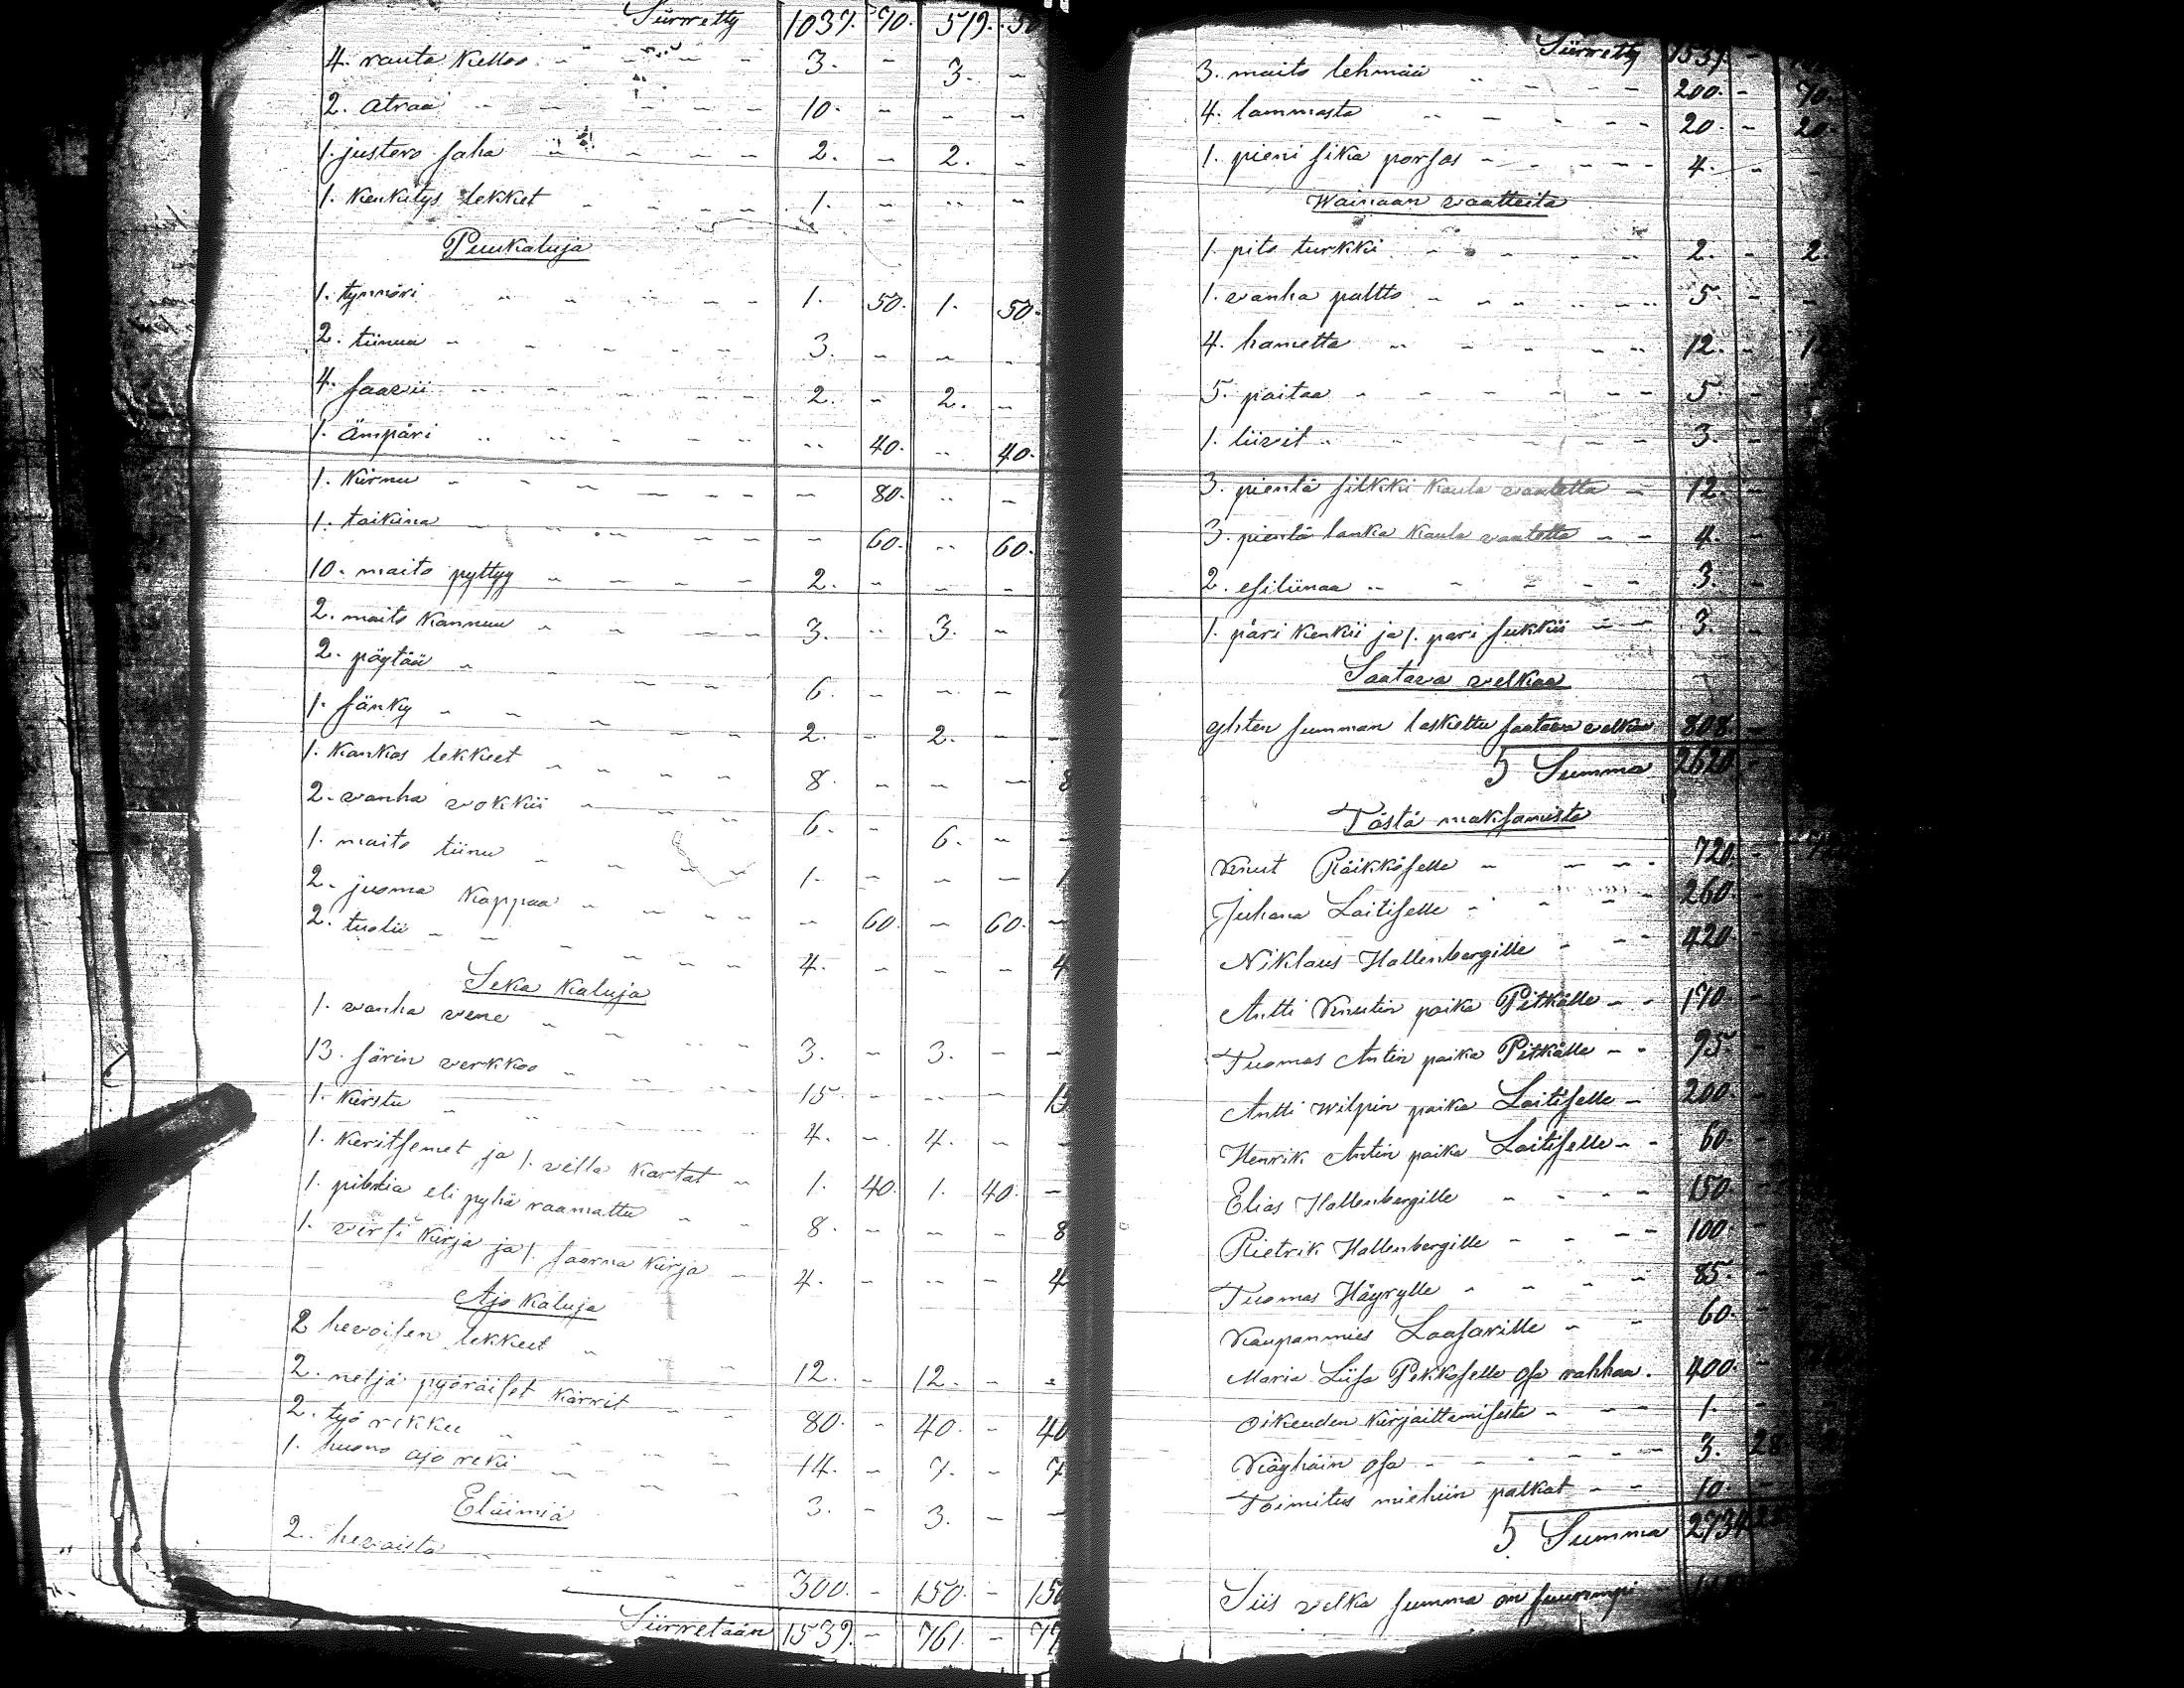 Siirretty 1037. 70. 519. 50
4. rauta Kelloo - 3. - 3. -
2. atraa - 10. - - -
1. justero saha - 2. - 2. -
1. Kenkitys lekket - 1. - - -
Puukaluja
1. tynnöri - 1. 50. 1. 50.
2. tiinua - 3. - - -
4. saavii - 2. - 2. -
1. Ämpäri - - 40. - 40.
1. Kirnu - - 80. - -
1. taikina - - 60. - 60.
10. maito pyttyy - 2. - - -
2. maito Kannuu - 3. - 3. -
2. pöytää - 6. - - -
1. sänky - 2. - 2. - -
1. Kankas lekkeet - 8. - - - 8
2. vanha vokkii - 6. - 6. - -
1. maito tiinu - 1. - - - 1
2. juoma Kappaa - - 60. - 60. -
2. tuolii - 4. - - - 4
Seka Kaluja
1. vanha vene - 3. - 3. - -
13. särin verkkoo - 15. - - - 15
1. Kirstu - 4. - 4. - -
1. Keritsemet ja 1. villa Kartat - 1. 40. 1. 40. -
1. piblia eli pyhä raamattu - 8. - - - 8
1. virsi Kirja ja 1. saarna Kirja - 4. - - - 4
Ajo Kaluja
2 hevoisen lekkeet - 12. - 12. - -
2. neljä pyöräiset Kärrit - 80. - 40. - 40
2. työ rekkee - 14. - 7. - 7
1. huono ajo reki - 3. - 3. - -
Eläimiä
2. hevoista - 300. - 150. - 150
Siirretään 1539. - 761. - 77
Siirretty 1539. -
3. maito lehmää - 200. - 70.
4. lammasta - 20. - 20.
1. pieni sika porsas - 4. - -
Wainaan vaatteita
1. pito turkki - 2. - 2.
1. vanha paltto - 5. - -
4. hametta - 12. - 12
5. paitaa - 5. -
1. liivit - 3. -
3. pientä silkki Kaula vaatetta - 12. -
3. pientä lanka Kaula vaatetta - 4. -
2. esiliinaa - 3. -
1. päri Kenkii ja 1. pari sukkii - 3. -
Saatava velkaa
yhten summan laskettu saatava velkaa 808.
S Summa 2620.
Tästä maksamista
Knut Räikköselle - 720.
Juhana Laitiselle - 260.
Niklaus Hallenbergille - 420.
Antti Knutin poika Pitkälle - 170.
Tuomas Antin poika Pitkälle - 95.
Antti Wilpin poika Laitiselle - 200.
Henrik Antin poika Laitiselle - 60.
Elias Hallenbergille - 150.
Rietrik Hallenbergille - 100.
Tuomas Häyrylle - 85.
Kaupanmies Laasarille - 60.
Maria Liisa Pekkaselle osa rahhaa. 400.
oikeuden Kirjaittamisesta - 1.
Väyhäin osa - 3. 28
Toimitus miehiin palkat - 10.
S Summa 2734 28
Siis velka summa on suurempi